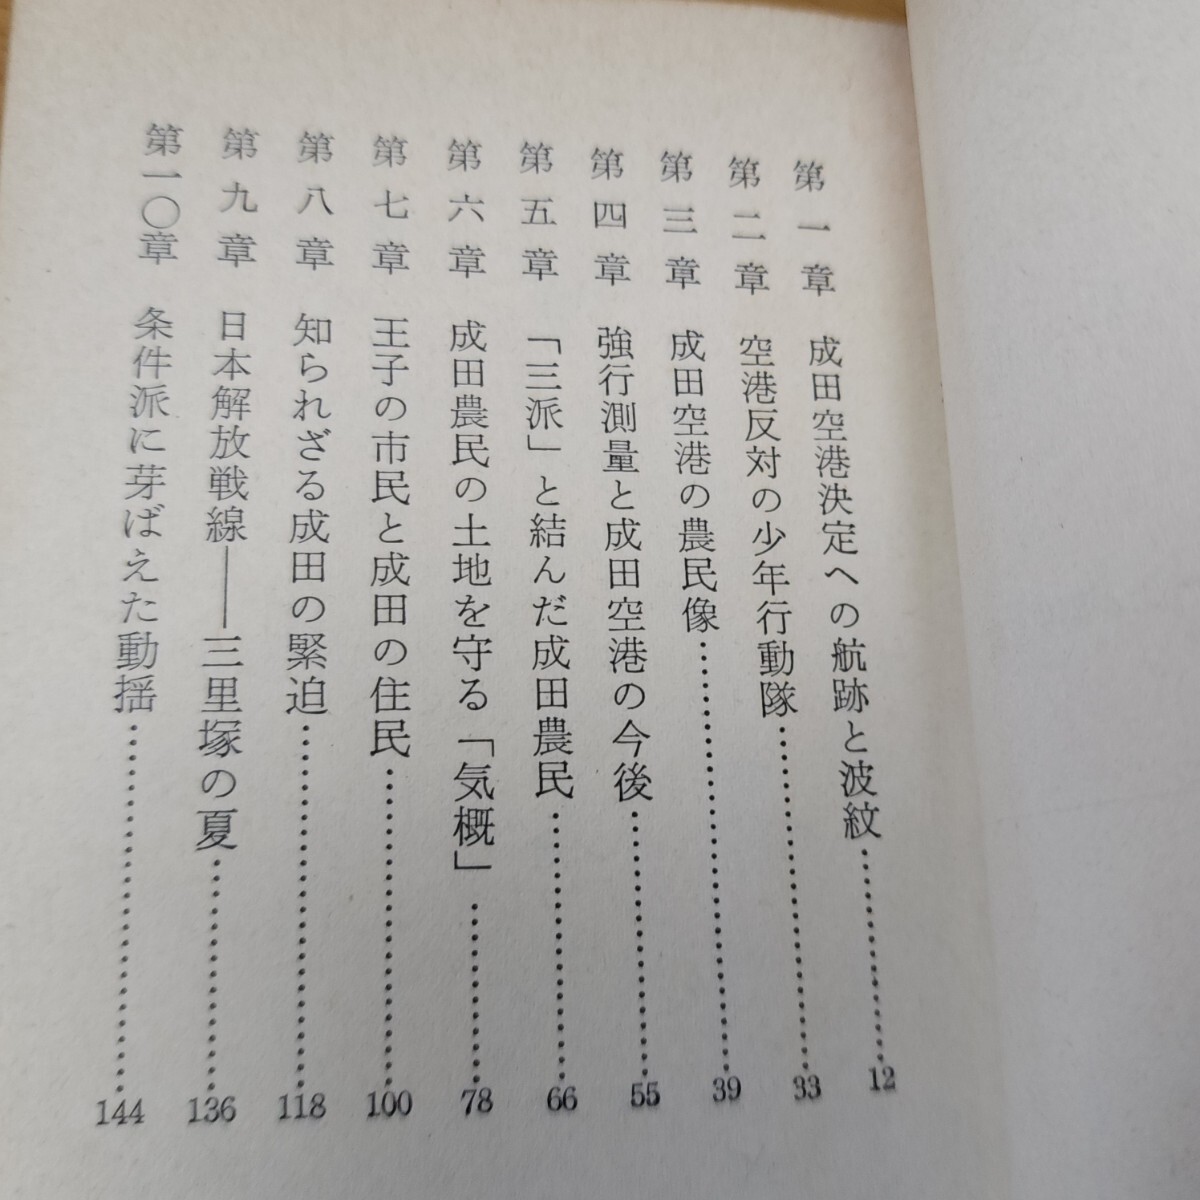 第一章 成田空港決定への航跡と波紋……12
第二章 空港反対の少年行動隊……33
第三章 成田空港の農民像……39
第四章 強行測量と成田空港の今後……55
第五章 「三派」と結んだ成田農民……66
第六章 成田農民の土地を守る「気概」……78
第七章 王子の市民と成田の住民……100
第八章 知られざる成田の緊迫……118
第九章 日本解放戦線――三里塚の夏……136
第一〇章 条件派に芽ばえた動揺……144